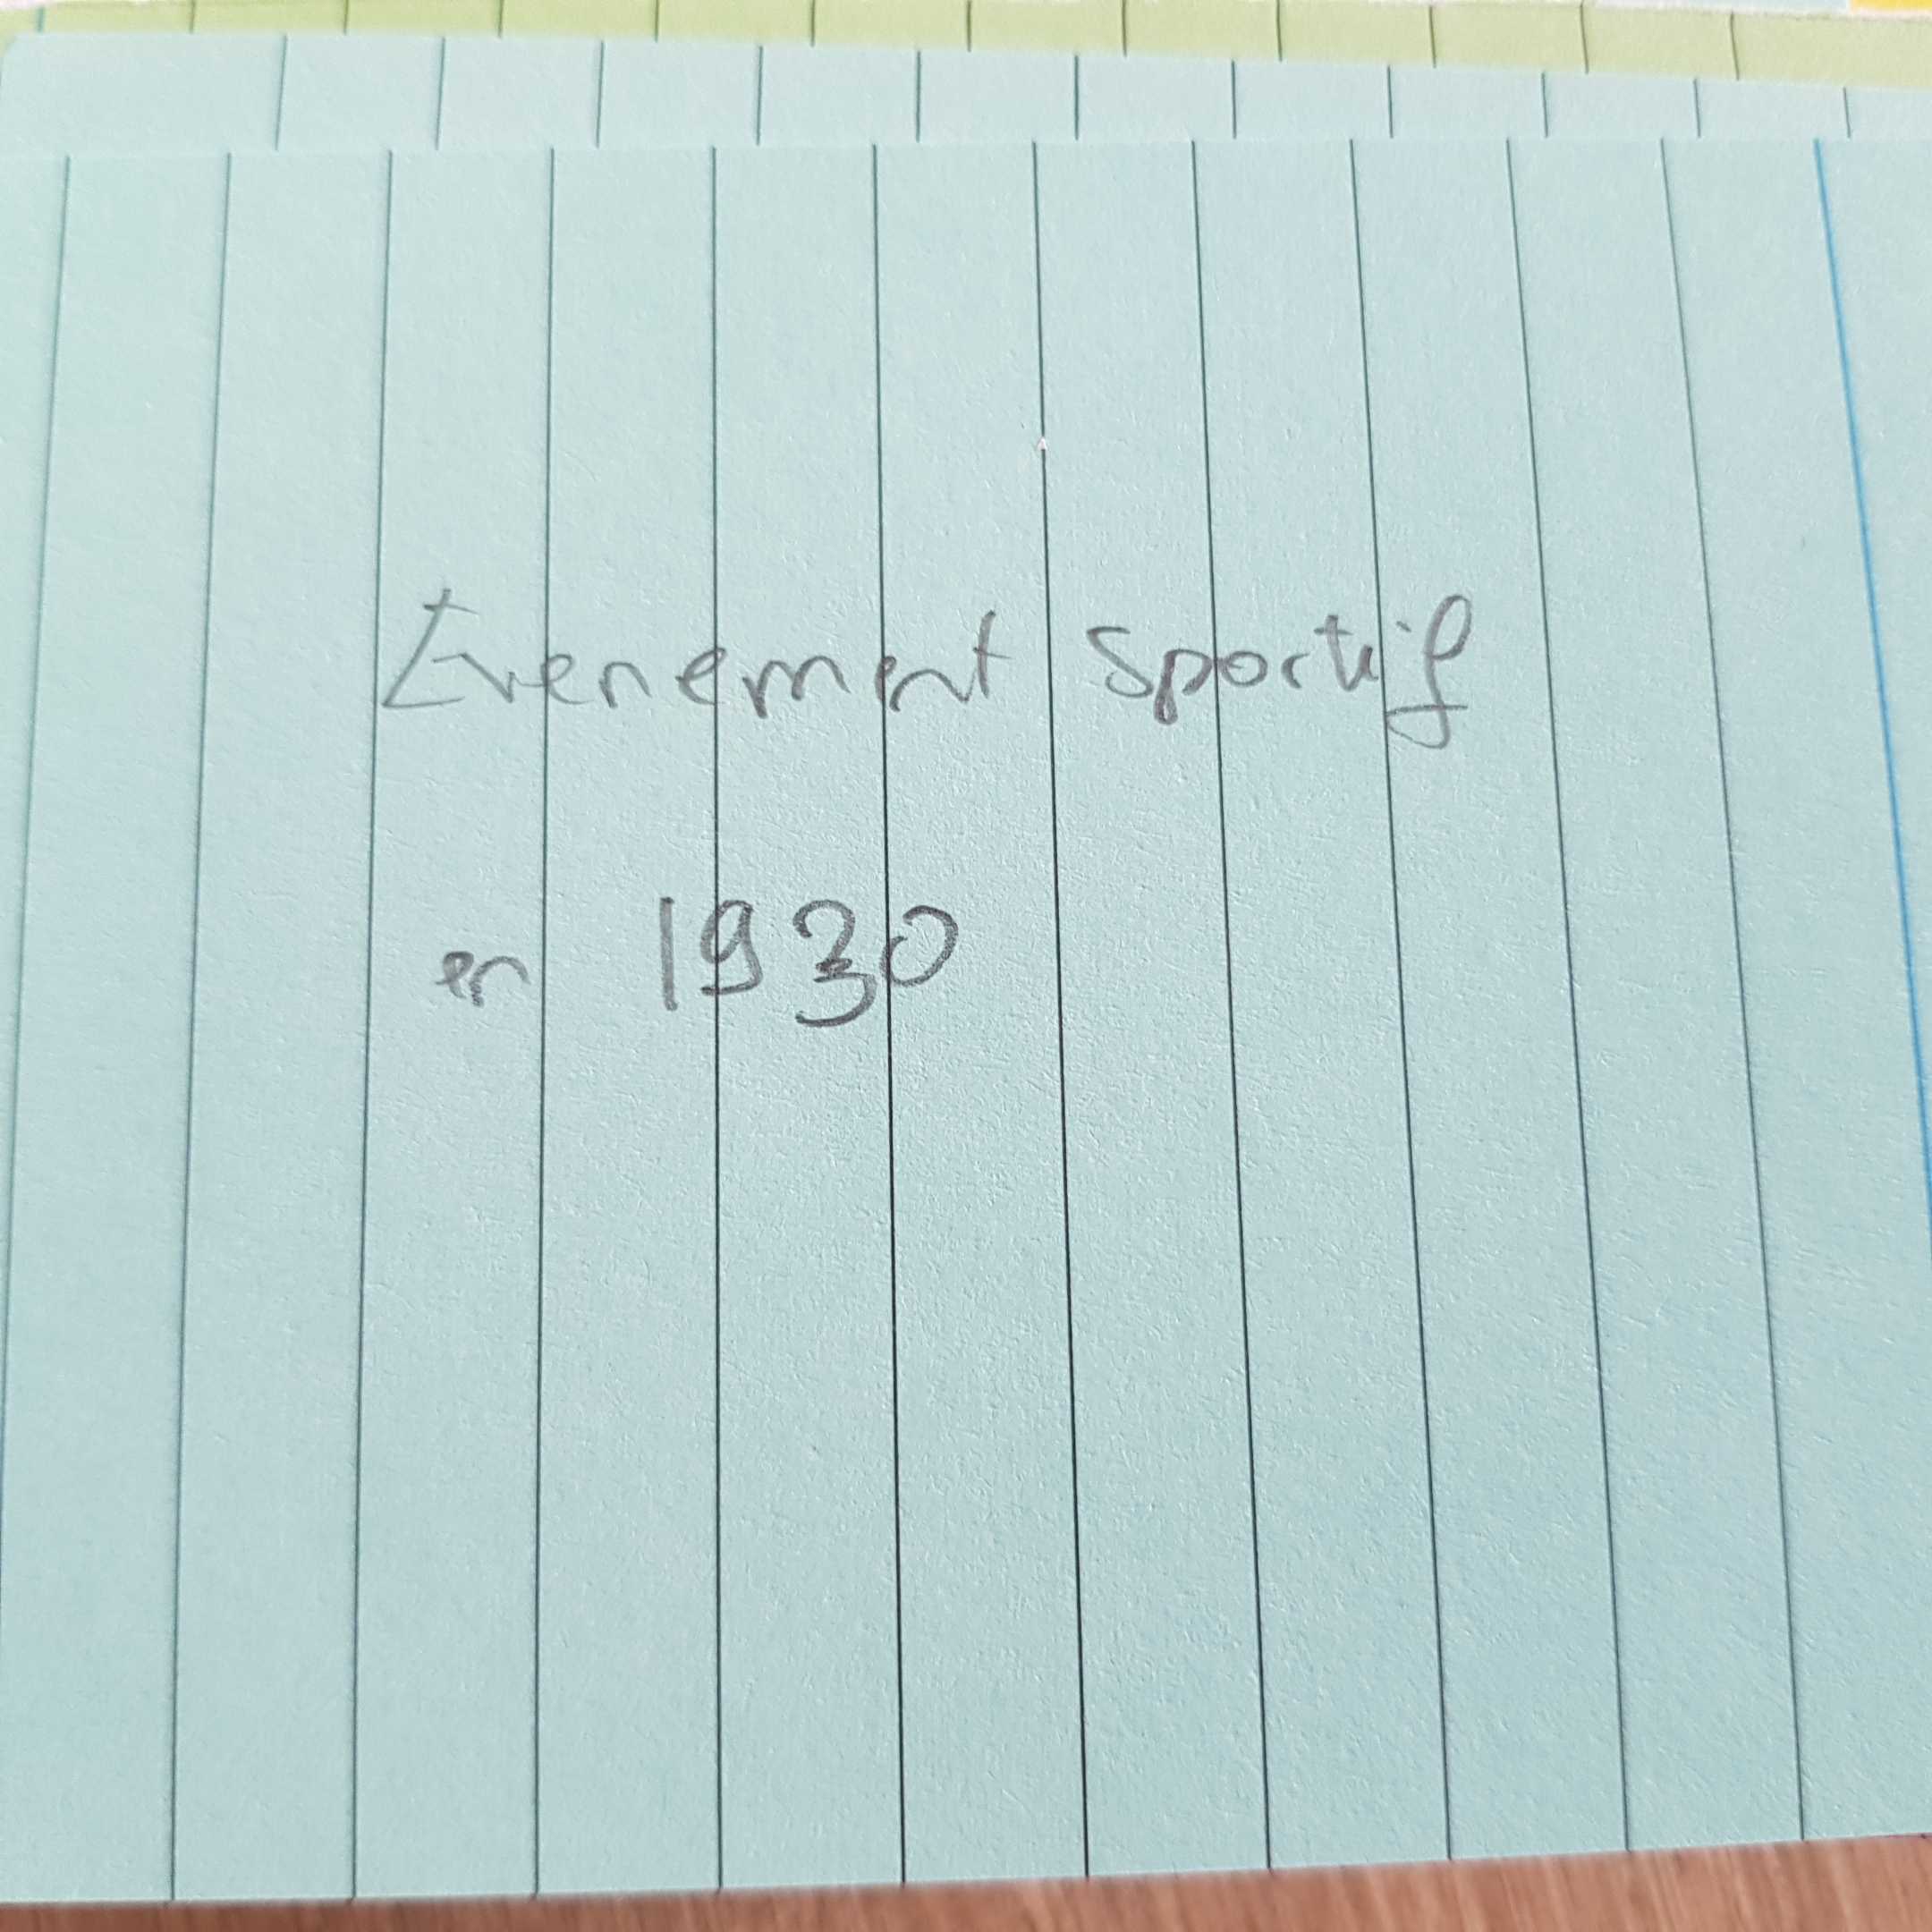 Evenement Sportif
en 1930